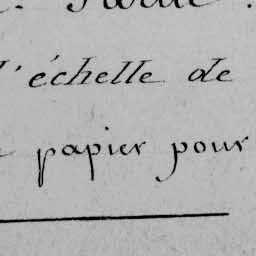 l'échelle de
papier pour